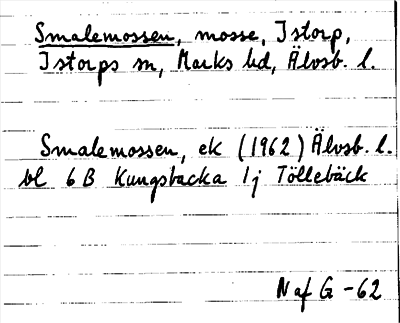 Smalemossen, mosse, Istorp,
Istorps sn, Marks hd, Älvsb. l.
Smalemossen, ek (1962) Älvsb. l.
bl 6B Kungsbacka 1j Töllebäck
N af G -62